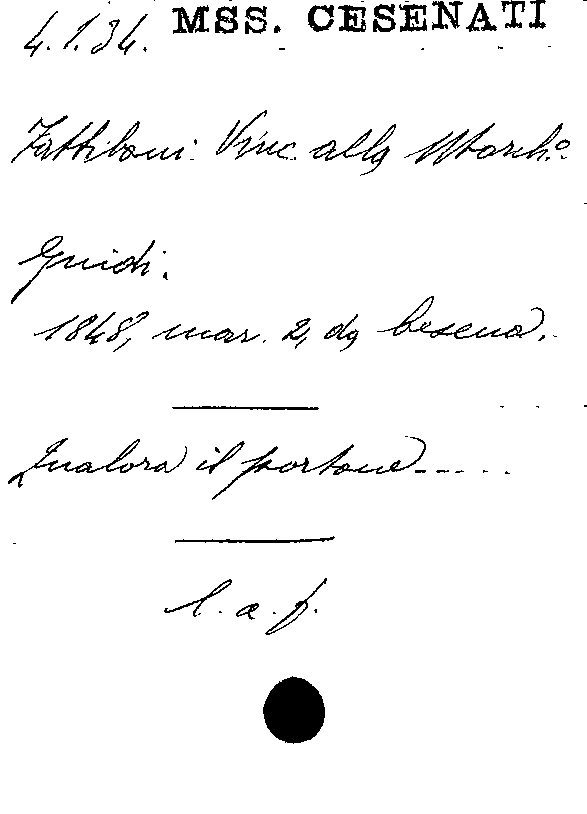 4.1.34. MSS. CESENATI
Fattiboni. Vinc. alla March.a
Guidi.
1848, mar. 2, da Cesena.
Qualora il portone-----
l. a. f.